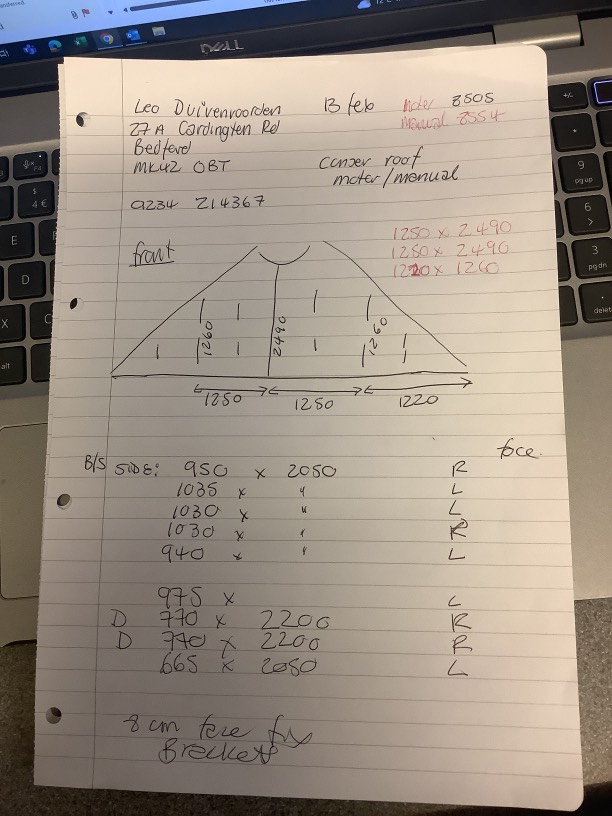 DELL
Leo Duivenvoorden 13 feb moter 8505
27A Cardington Rd manual 8554
Bedford
MK42 0BT conser roof
moter/manual
0234 214367
front
1250 x 2490
1250 x 2490
1220 x 1260
1260 2490 1260
1250 1250 1220
face
B/S SIDE: 950 x 2050 R
1035 x " L
1030 x " L
1030 x " R
940 x " L
975 x L
D 770 x 2200 R
D 740 x 2200 R
665 x 2050 L
8 cm face fix
Brackets